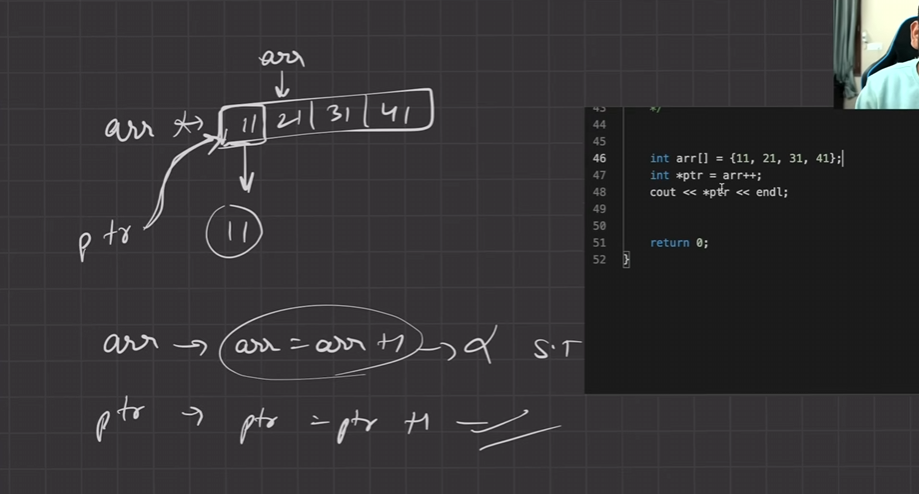 arr
arr → 11 | 21 | 31 | 41
ptr
11
arr → arr = arr +1 → α S.T
ptr → ptr = ptr +1
43 */
44
45
46 int arr[] = {11, 21, 31, 41};
47 int *ptr = arr++;
48 cout << *ptr << endl;
49
50
51 return 0;
52 }